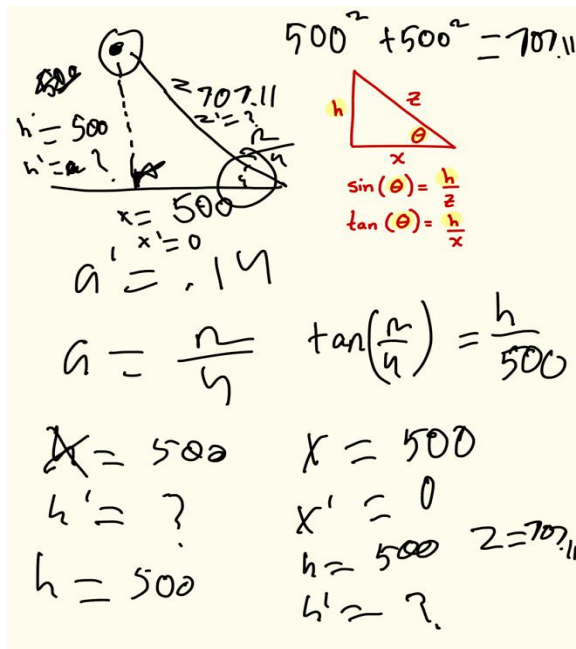 500² + 500² = 707.11
z 707.11
z' = ?
h = 500
h' = ?
π/4
x = 500
x' = 0
h
z
θ
x
sin(θ) = h/z
tan(θ) = h/x
a' = .14
a = π/4
tan(π/4) = h/500
= 500
h' = ?
h = 500
x = 500
x' = 0
h = 500
z = 707.11
h' = ?